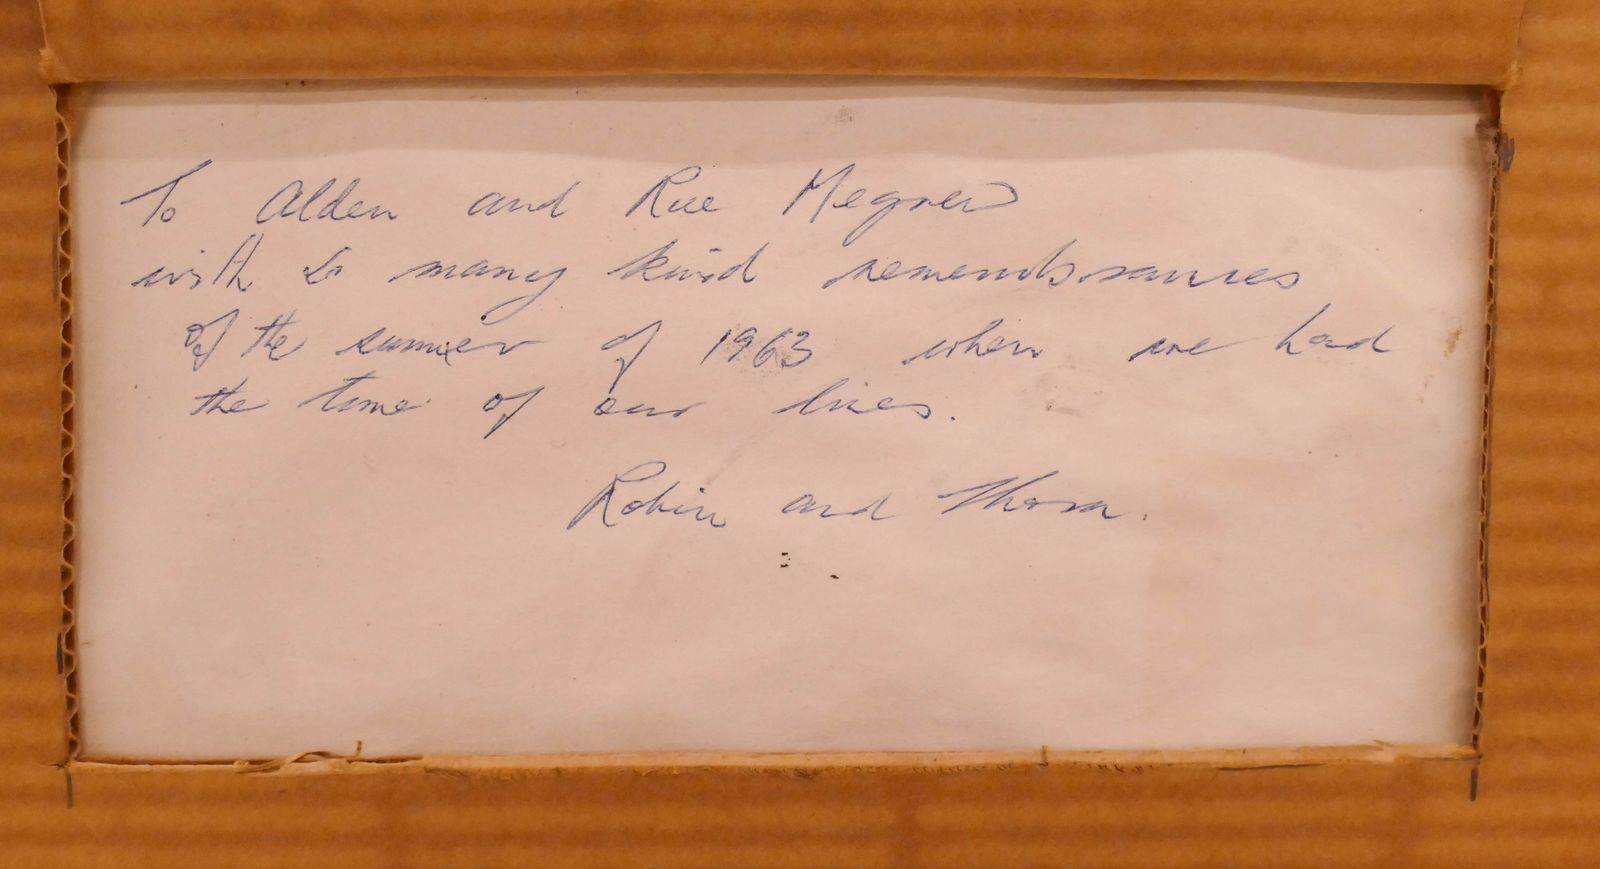 To Alden and Rue Megrew
with so many kind remembrances
of the summer of 1963 when we had
the time of our lives.
Robin and Thora.